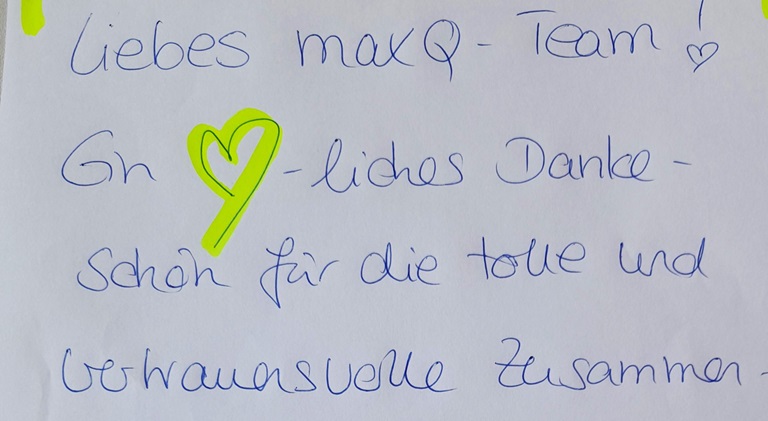 Liebes maxQ - Team!
Ein ♡-liches Danke-
schön für die tolle und
vertrauensvolle Zusammen-